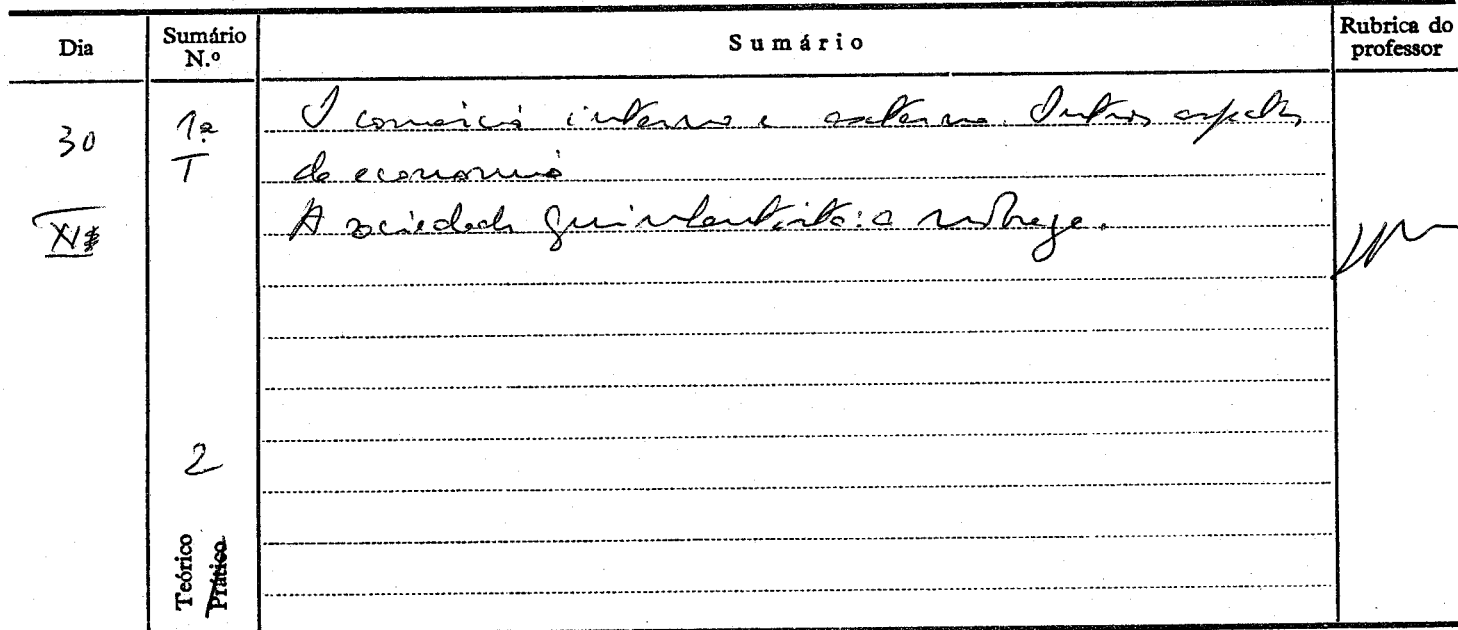 Dia Sumário N.º Sumário Rubrica do professor
30 1ª T O comércio interno e externo. Outros aspectos
da economia
XI A sociedade quinhentista: a nobreza.
2
Teórico
Prático